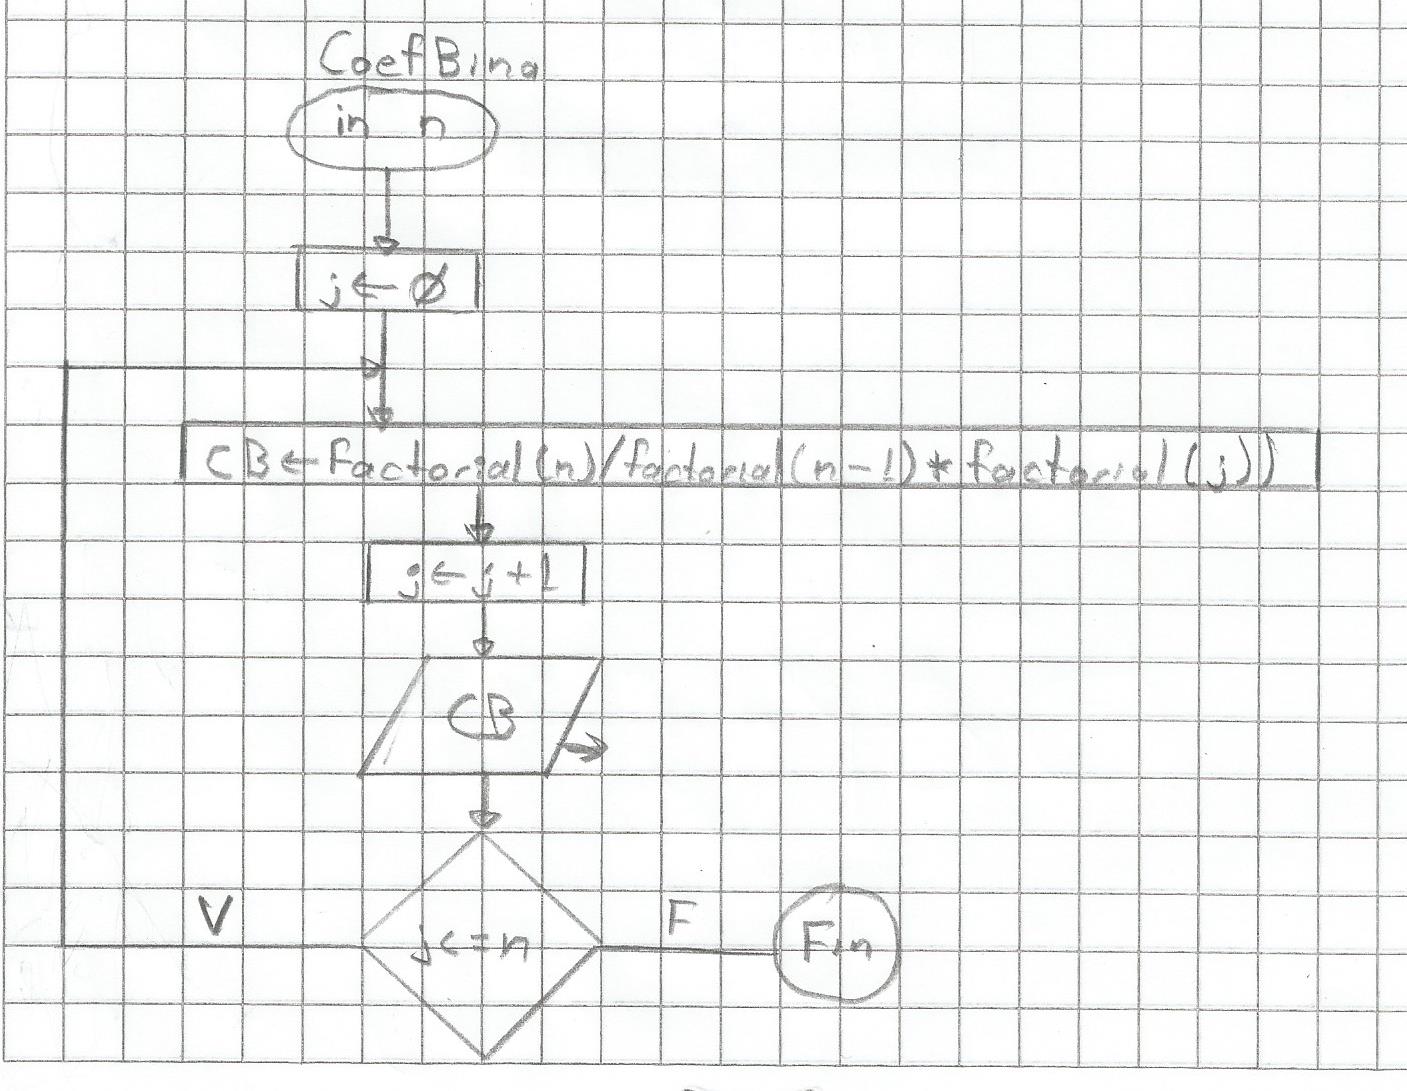 CoefBino
in n
j ← Ø
CB ← factorial(n)/factorial(n-1)*factorial(j))
j ← j + 1
CB
j <= n
V
F
Fin